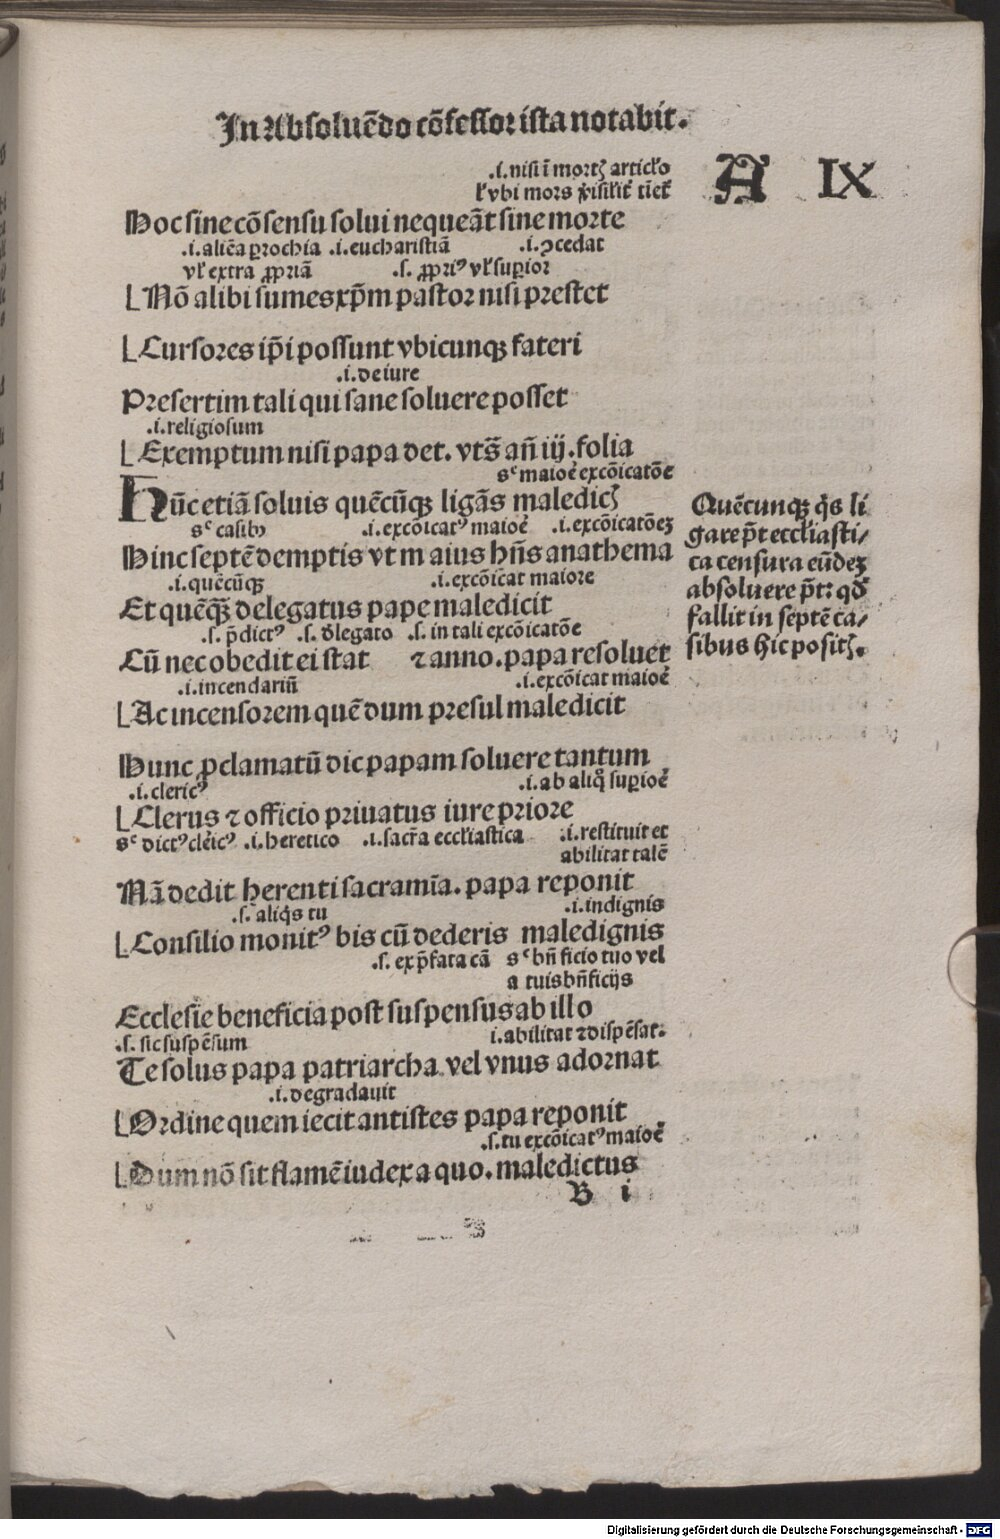 In Absoluēdo cōfessor ista notabit.
A IX
.i. nisi ī mortꝭ articƚo
ƚ vbi mors
Hoc sine cōsensu solui nequeāt sine morte
.i. aliēa ꝑrochia .i. eucharistiā .i. ꝯcedat
vƚ extra ꝓpriā .s. ꝓpriꝰ vƚ suꝑior
Nō alibi sumes xp̄m pastor nisi prestet
Cursores ip̄i possunt vbicunqꝫ fateri
.i. de iure
Presertim tali qui sane soluere posset
.i. religiosum
Exemptum nisi papa det. vts̄ añ iij. folia
sꝫ maiore excōicatōe
Hūc etiā soluis quēcūqꝫ ligās maledicꝭ
casibꝰ .i. excōicatꝰ maiore .i. excōicatōeꝫ
Hinc septē demptis vt maius hn̄s anathema
.i. quēcūqꝫ .i. excōicat maiore
Et quēqꝫ delegatus pape maledicit
.s. p̄dictꝰ .s. delegato .s. in tali excōicatōe
Cū nec obedit ei stat ⁊ anno. papa resoluet
.i. incendariū .i. excōicat maiore
Ac incensorem quēdum presul maledicit
Hunc ꝓclamatū dic papam soluere tantum
.i. clericꝰ .i. ab aliq̊ suꝑiore
Clerus ⁊ officio priuatus iure priore
dictꝰ clericꝰ .i. heretico .i. sacr̄a eccƚiastica .i. restituit et
abilitat talē
Nā dedit herenti sacramīa. papa reponit
.s. aliq̇s tu .i. indignis
Consilio monitꝰ bis cū dederis maledignis
.s. ex p̄fata cā bn̄ficio tuo vel
a tuis bn̄ficijs
Ecclesie beneficia post suspensus ab illo
.s. sic suspēsum i. abilitat ⁊ dispēsat.
Te solus papa patriarcha vel vnus adornat
.i. degradauit
Ordine quem iecit antistes papa reponit
.s. tu excōicatꝰ maiore
Dum nō sit flamē iudex a quo. maledictus
B i
Quēcunqꝫ q̇s li
gare p̄t eccƚiasti/
ca censura eūdeꝫ
absoluere p̄t: qđ
fallit in septē ca/
sibus hic positꝭ.
Digitalisierung gefördert durch die Deutsche Forschungsgemeinschaft - DFG